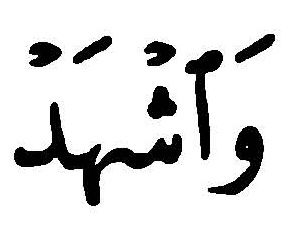 وَٱشْهَدْ